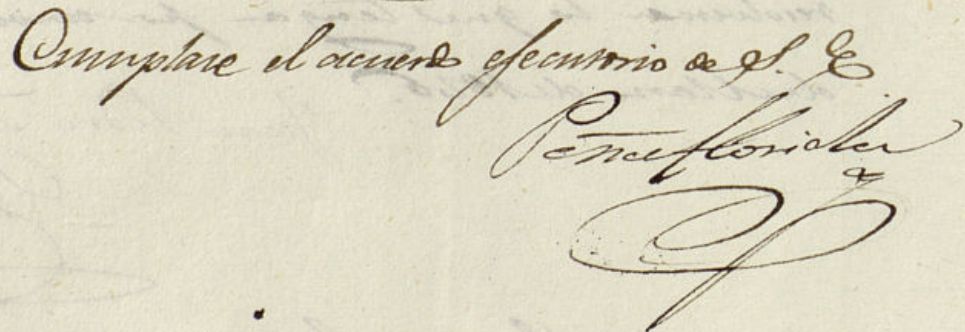 Cumplase el acuerdo ejecutorio de S. E
Peñaflorida